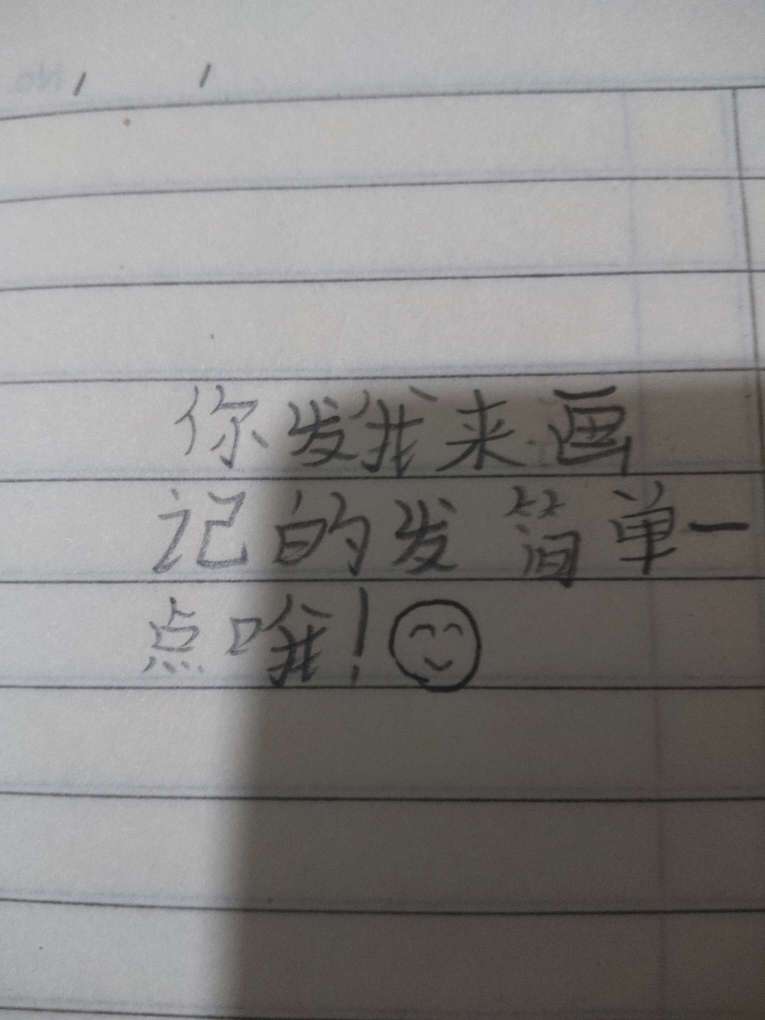 你发我来画
记的发简单一
点哦!